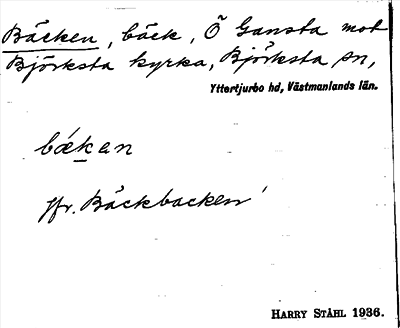 Bäcken, bäck, Ö Gansta mot
Björksta kyrka, Björksta sn,
Yttertjurbo hd, Västmanlands län.
bǽkan
jfr. Bäckbacken
HARRY STÅHL 1936.